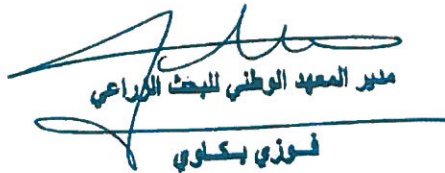 مدير المعهد الوطني للبحث الزراعي
فـوزي بـكـاوي